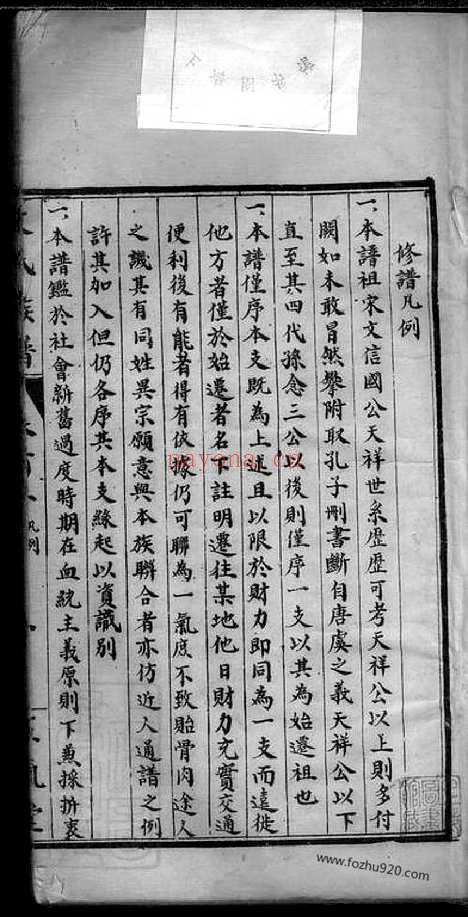 修譜凡例
一本譜祖宋文信國公天祥世系歷歷可考天祥公以上則多付
闕如未敢冒然攀附取孔子刪書斷自唐虞之義天祥公以下
直至其四代孫念三公以後則僅序一支以其為始遷祖也
一本譜僅序本支既為上述且以限於財力即同為一支而遠徙
他方者僅於始遷者名下註明遷往某地他日財力充實交通
便利後有能者得有依據仍可聯為一氣庶不致貽骨肉途人
之譏其有同姓異宗願意與本族聯合者亦仿近人通譜之例
許其加入但仍各序其本支緣起以資識別
一本譜鑑於社會新舊過度時期在血統主義原則下兼採折衷
氏族譜
凡例
nayona.cn
www.fozhu920.com